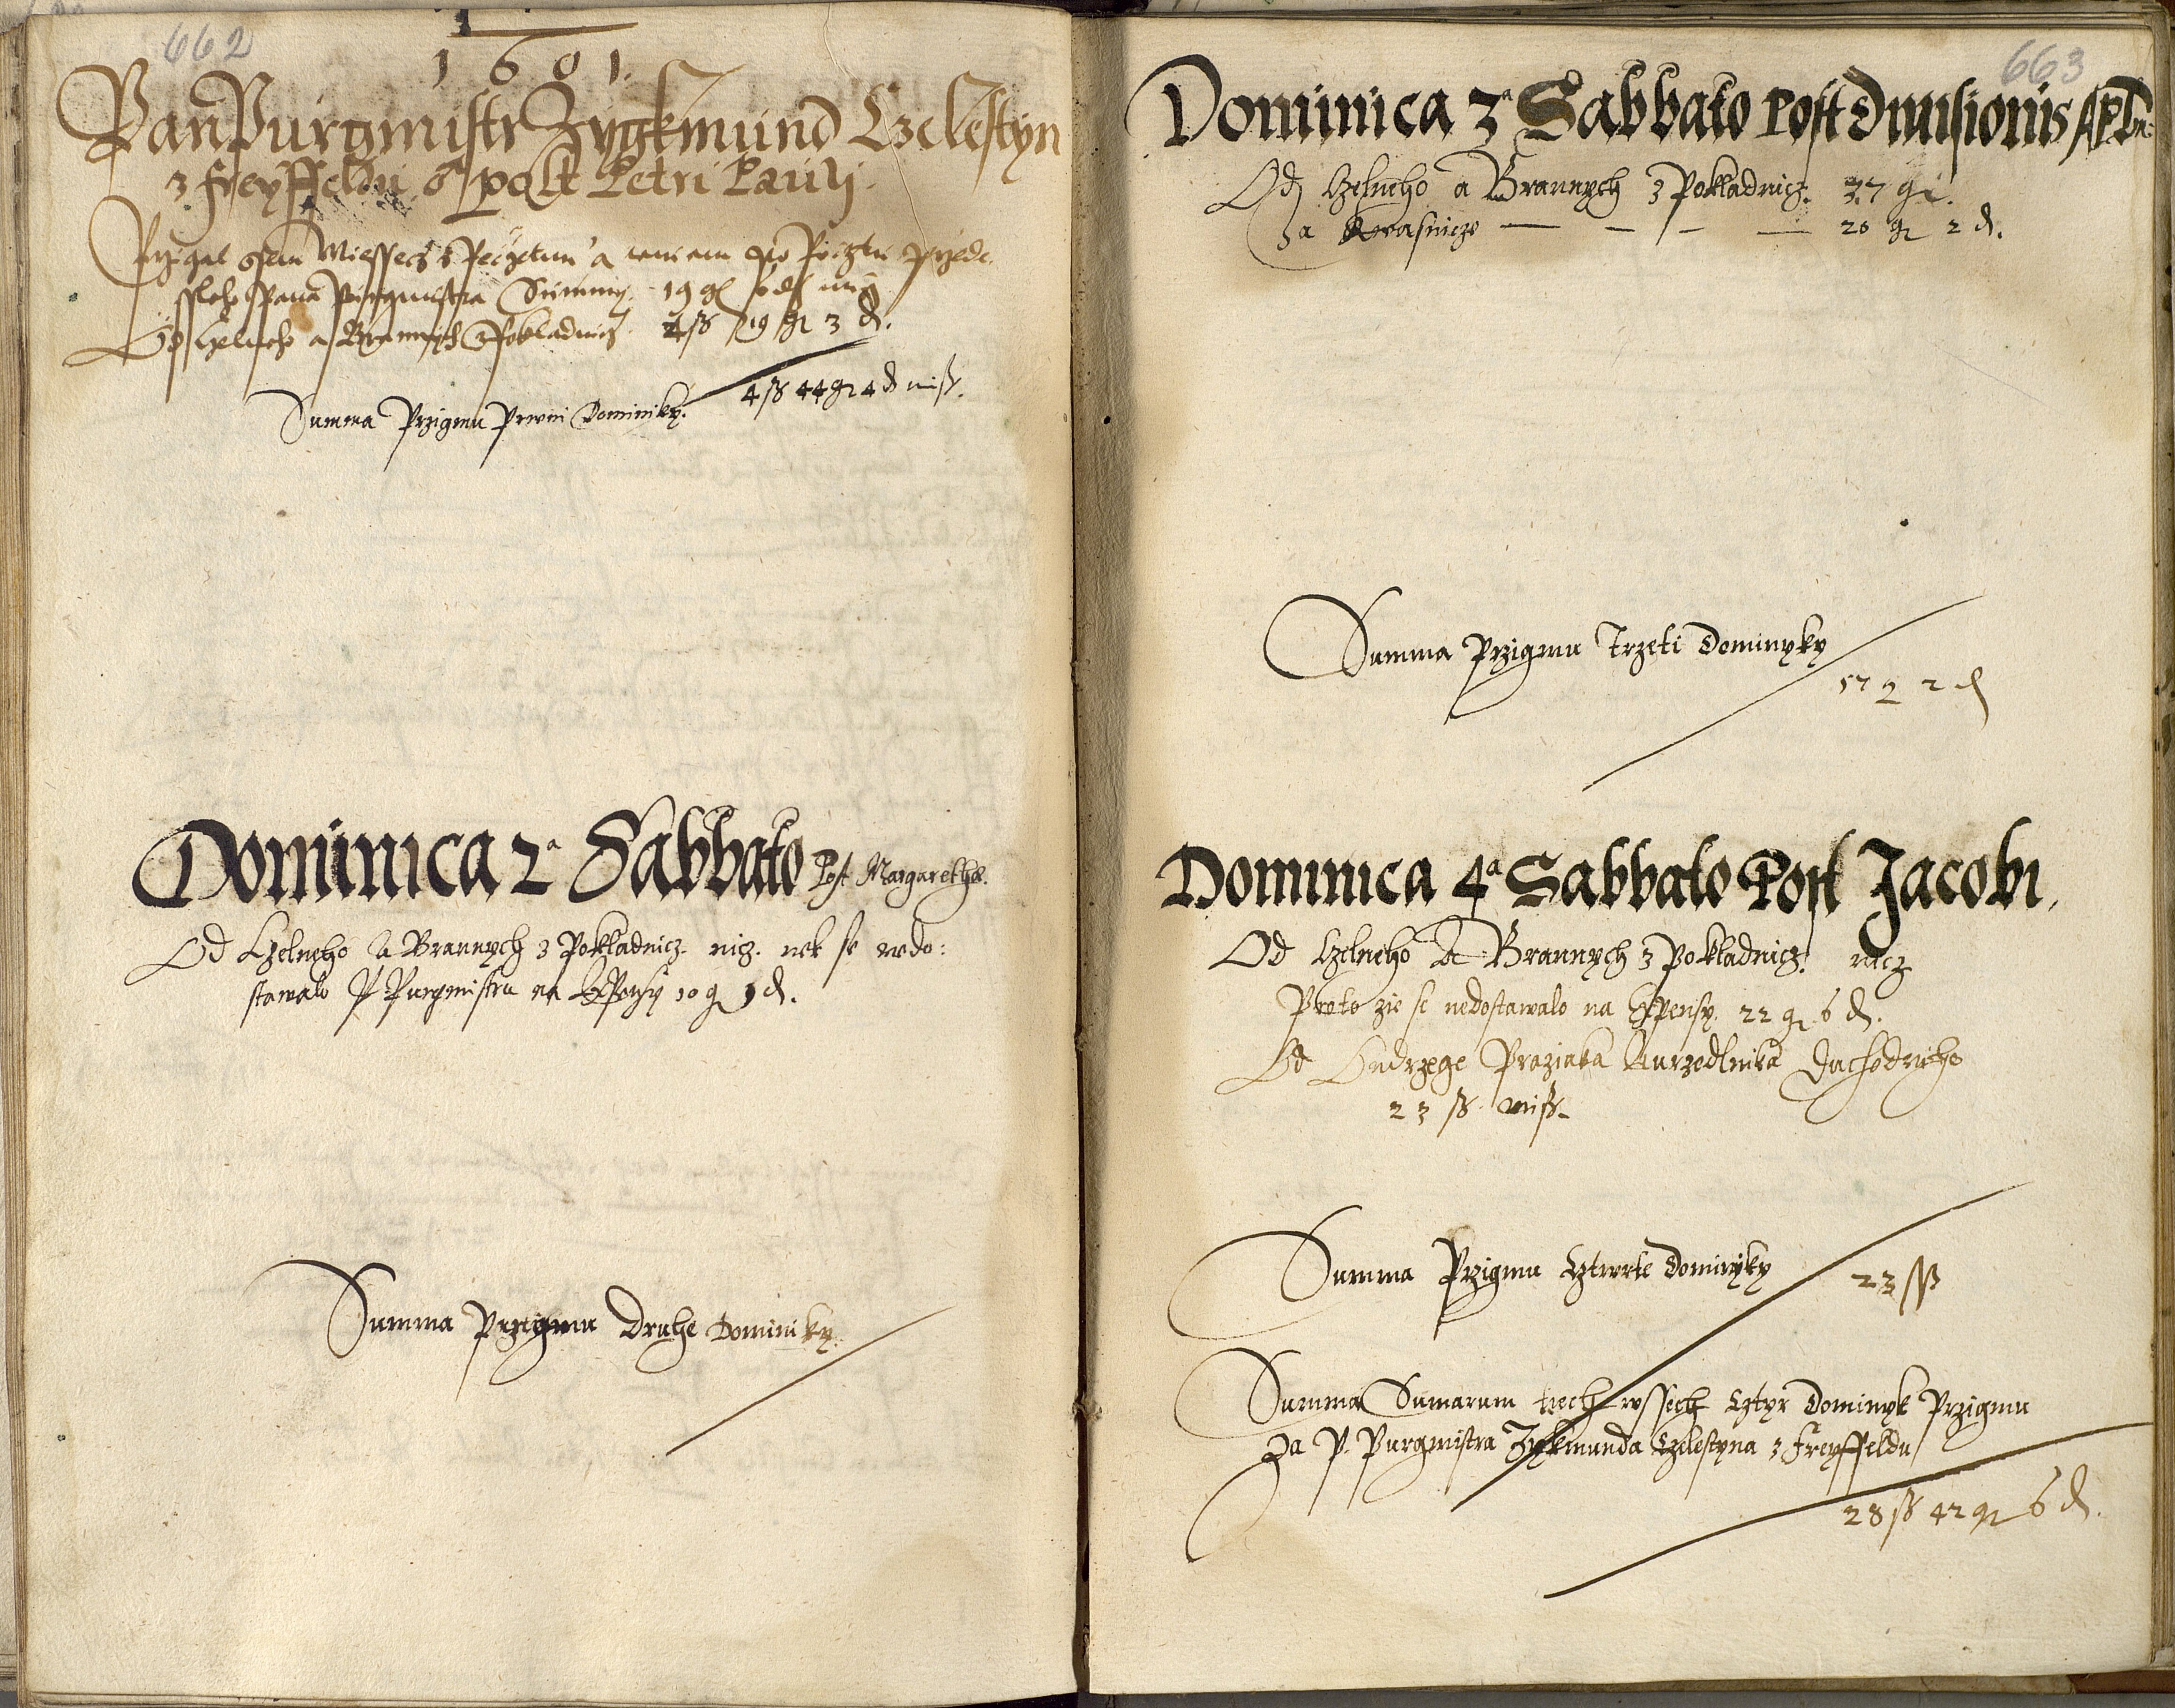 662
1601.
Pan Purgmistr Zygkmund Czelestyn
z Freyffeldu Sabbato post Petri Pauli.
Przigal Miessecz s Peczetmi a po Pocztu przede
ssleho Pana Purgmistra Summy 19 g
Od Czelneho a Brannych z Pokladnicz 4 ß 19 gr 3 d.
Summa Przigmu Prwni Dominiky. 4 ß 44 gr 4 d miß.
Dominica 2a Sabbato Post Margarethae.
Od Czelneho a Brannych z Pokladnicz nicz. nek se nedo:
stawalo P Purgmistru na Expensy 10 g 1 d.
Summa Przigmu Druhe Dominiky.
663
Dominica 3a Sabbato Post Diuisionis Apl:
Od Czelneho a Brannych z Pokladnicz. 37 gr.
Za Kwasnicze — — — — 20 gr 2 d.
Summa Przigmu Trzeti Dominyky
57 g 2 d
Dominica 4a Sabbato Post Jacobi.
Od Czelneho A Brannych z Pokladnicz. nicz
Proto zie se nedostawalo na Expensy. 22 gr 6 d.
Od Ondrzege Praziaka Aurzedlnika Duchodniho
23 ß miß.
Summa Przigmu Cztwrte Dominyky 23 ß
Summa Sumarum tiech wssech Cztyr Dominyk Przigmu
Za P. Purgmistra Zykmunda Czelestyna z Freyffeldu
28 ß 42 gr 6 d.